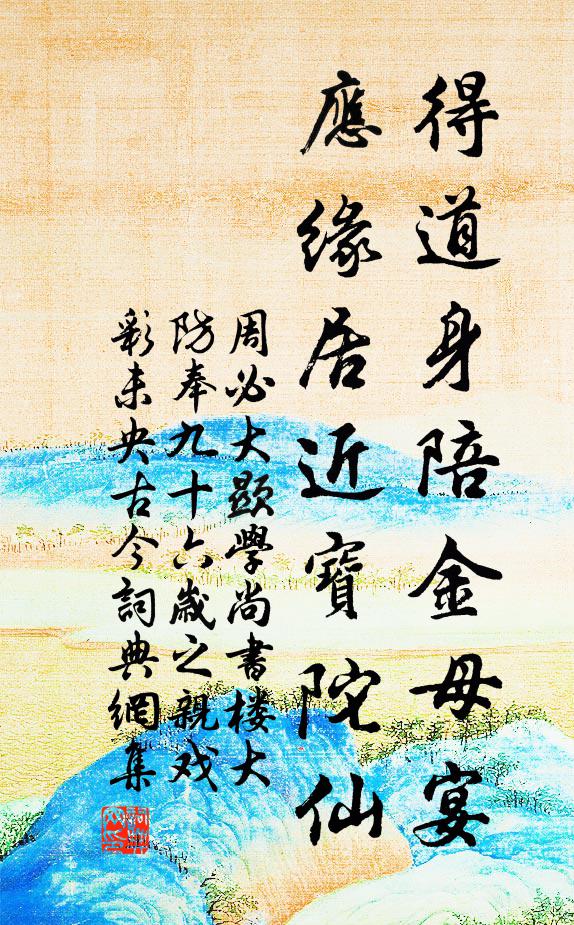 得道身陪金母宴
應緣居近寶陀仙
周必大顯學尚書楼大
防奉九十六歲之親戏
彩未央古今詞典網集